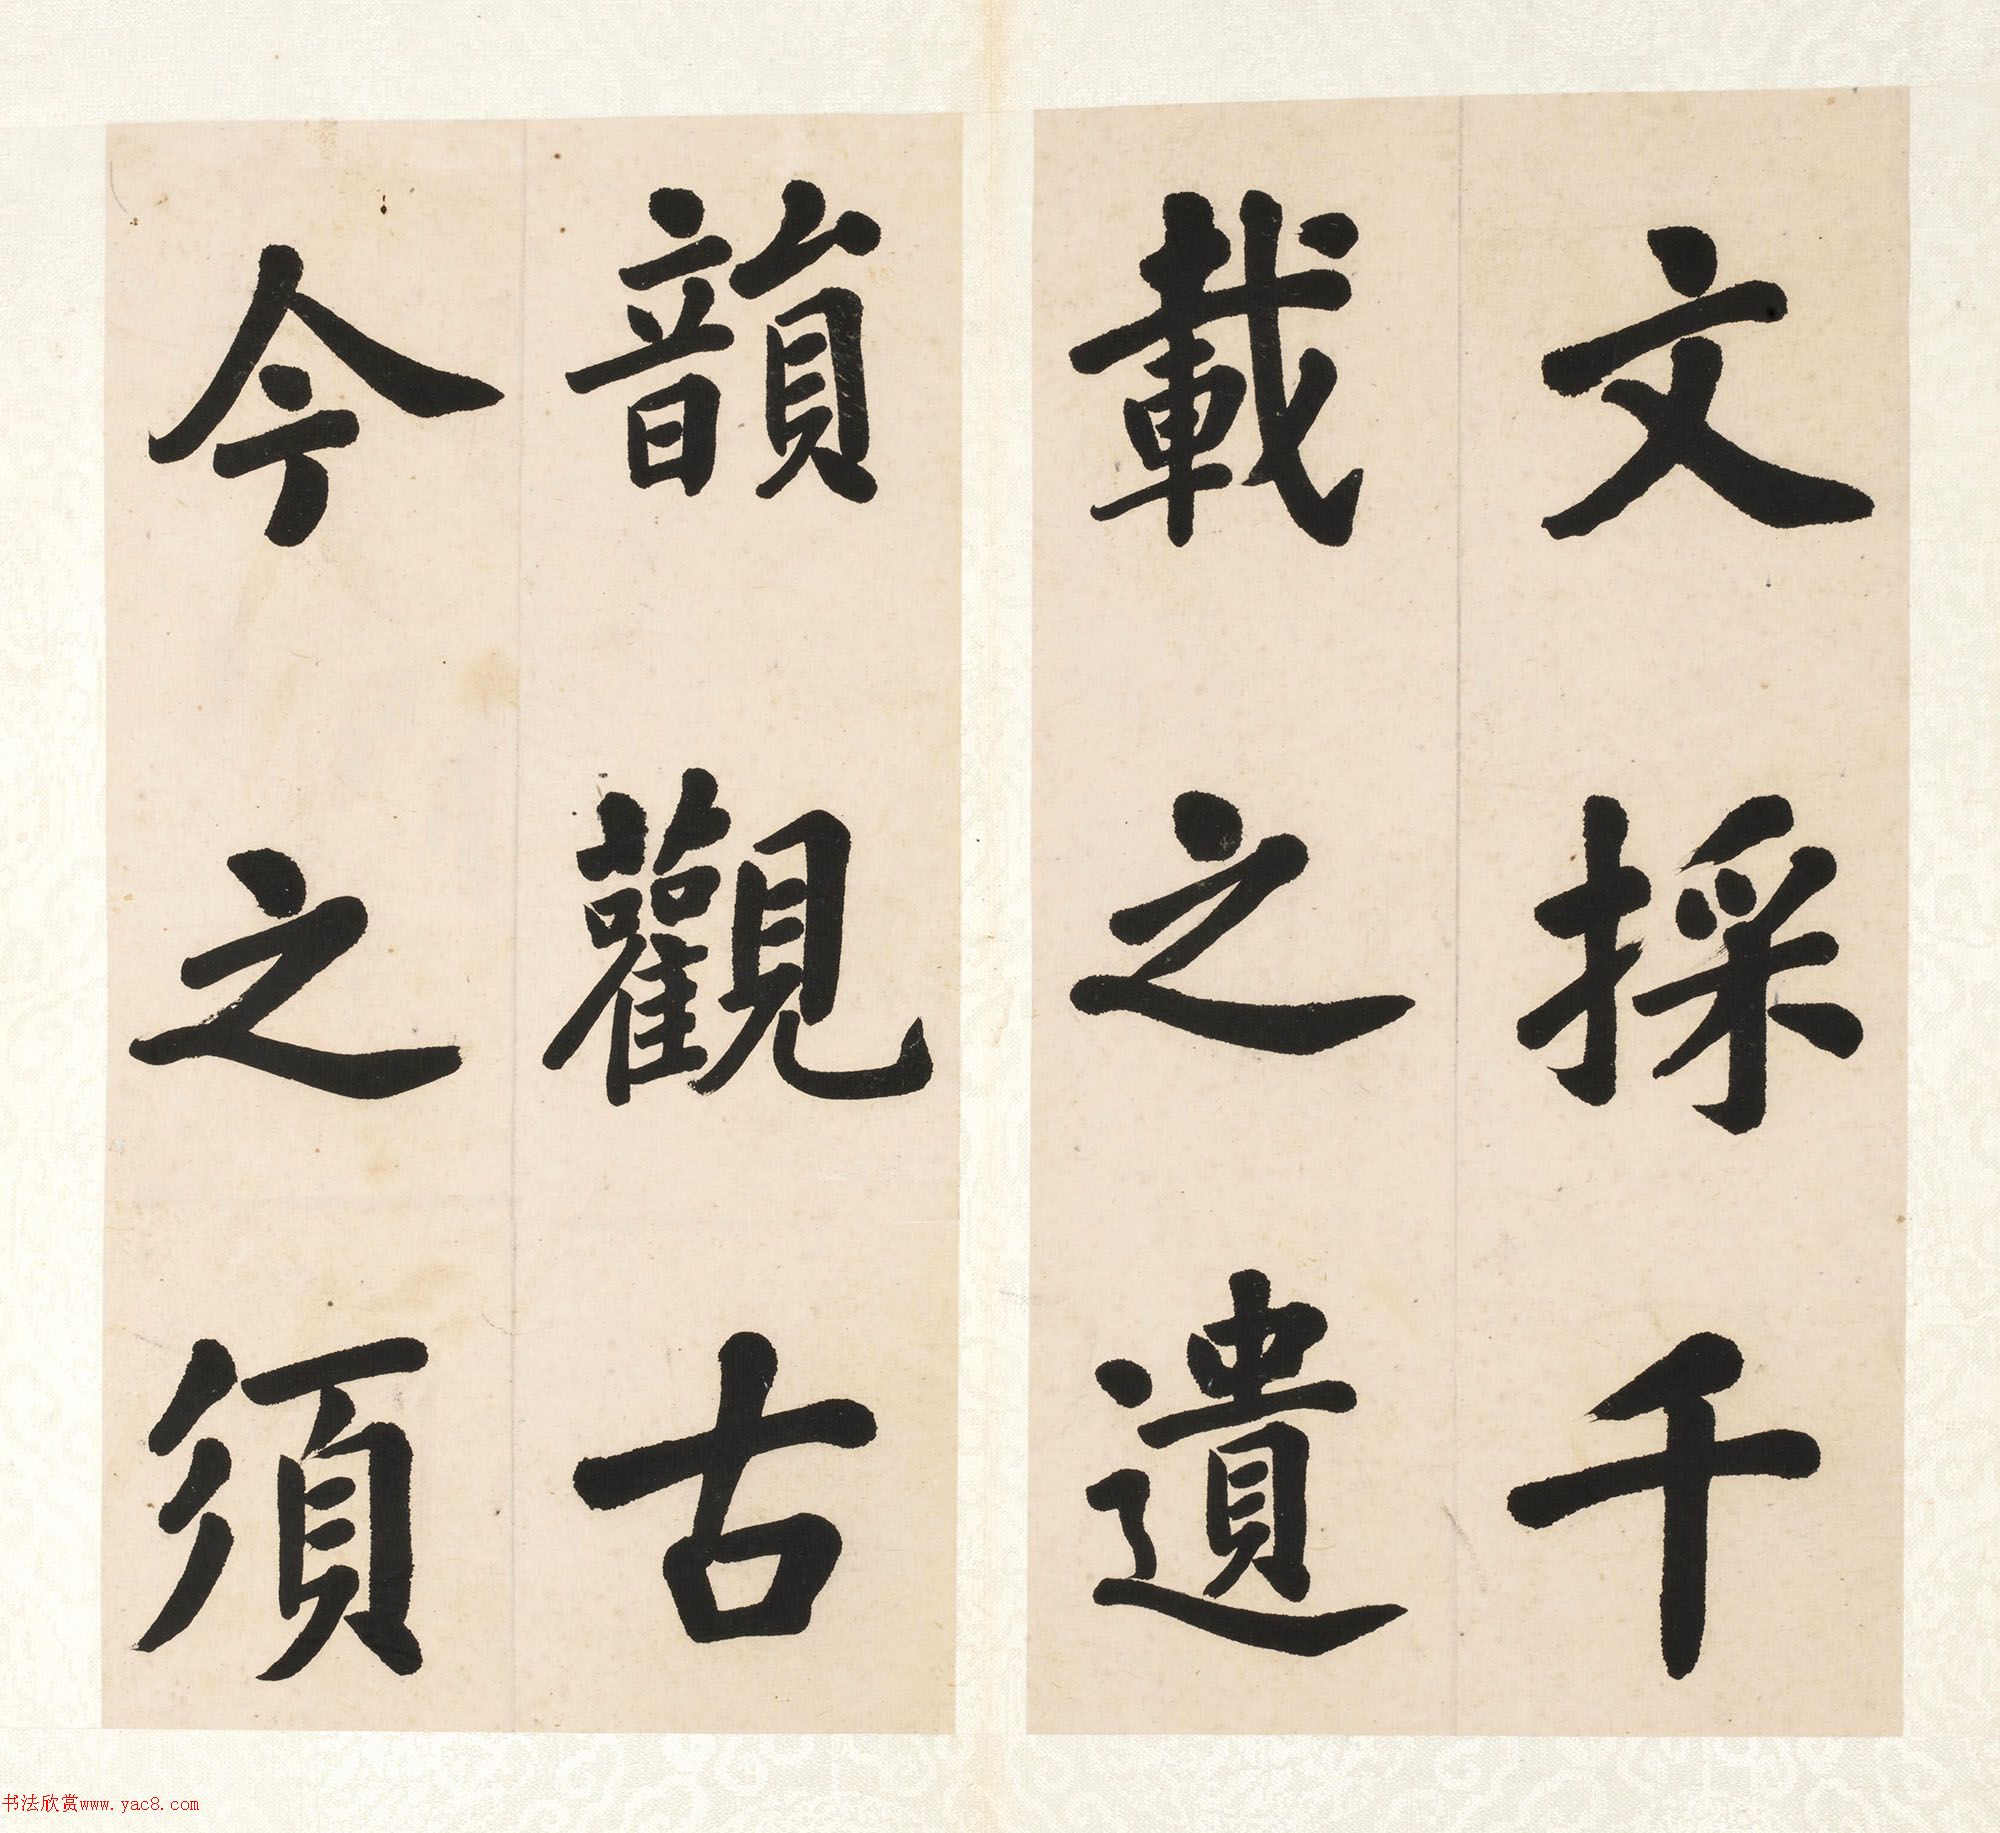 文採千
載之遺
韻觀古
今之須
书法欣赏www.yac8.com